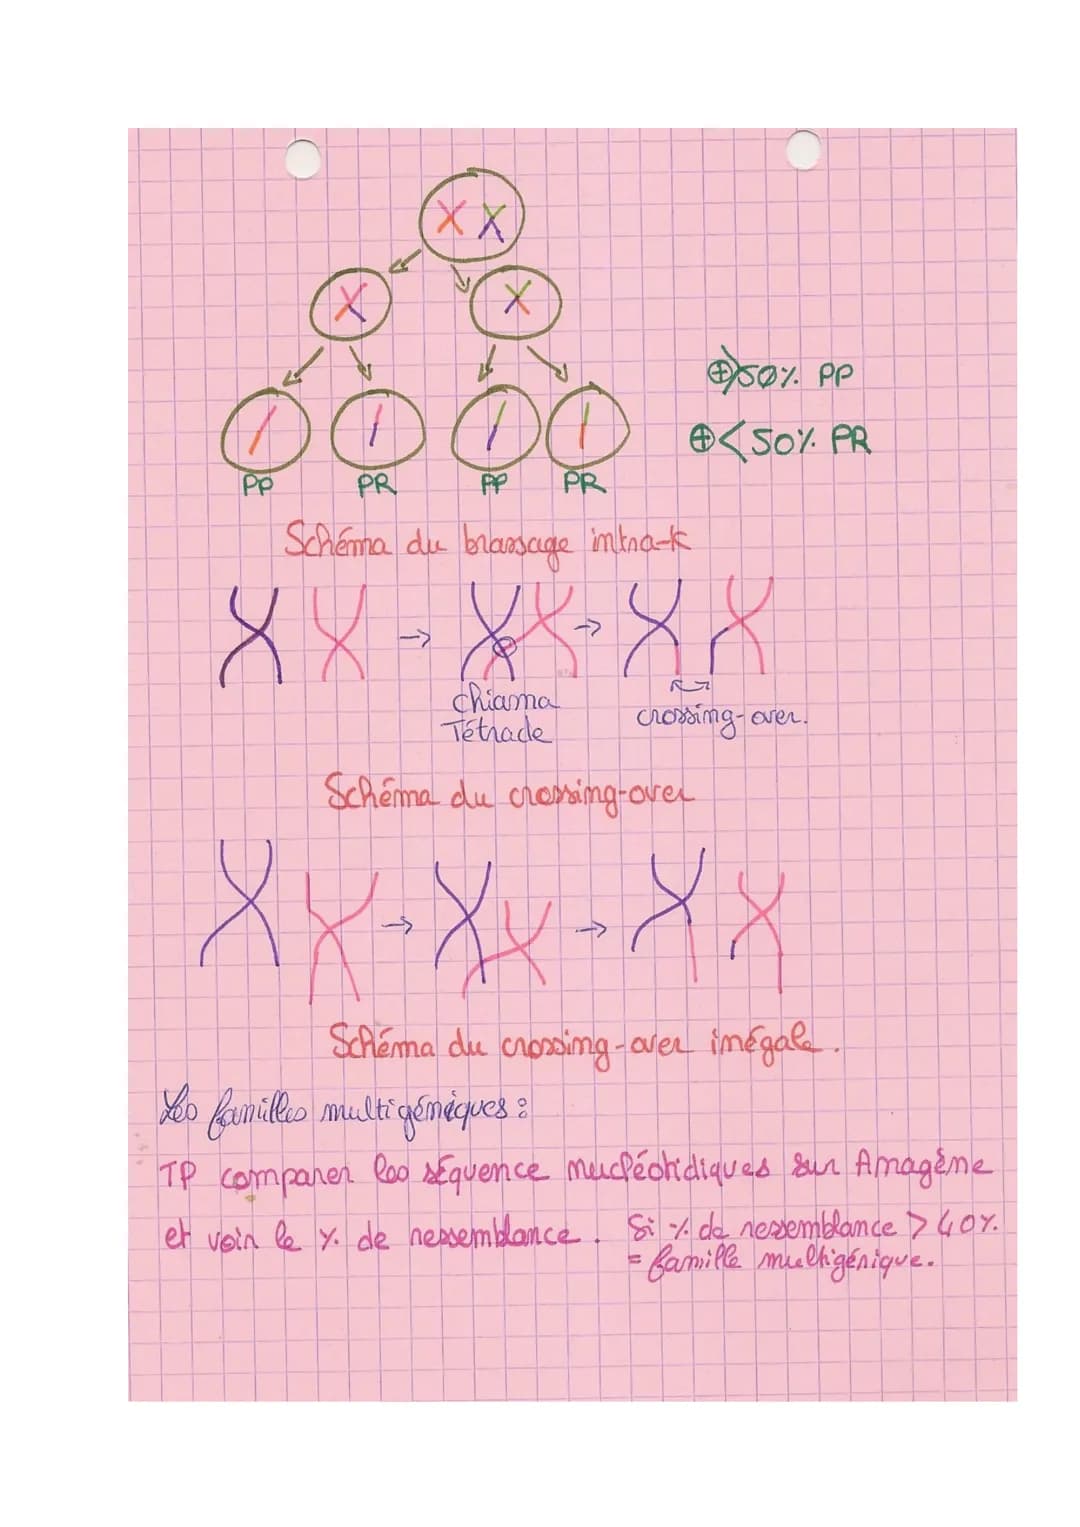 ⊕>50% PP
⊕<50% PR
PP PR PP PR
Schéma du brassage intra-k
chiama
Tétrade
crossing-over.
Schéma du crossing-over
Schéma du crossing-over inégale.
Les familles multigéniques :
TP comparer les séquence nucléotidiques sur Anagène
et voir le % de ressemblance. Si % de ressemblance > 40%
= famille multigénique.